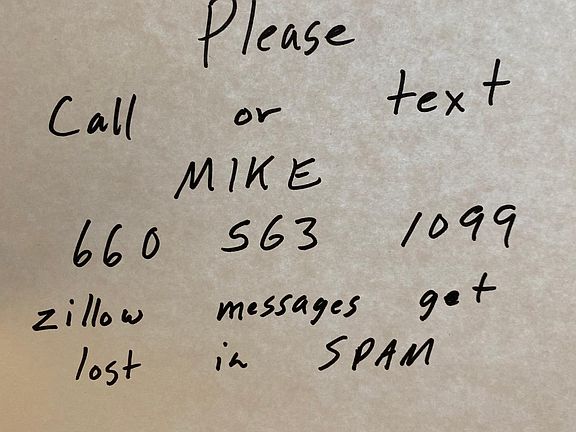 Please
Call or text
MIKE
660 563 1099
zillow messages get
lost in SPAM